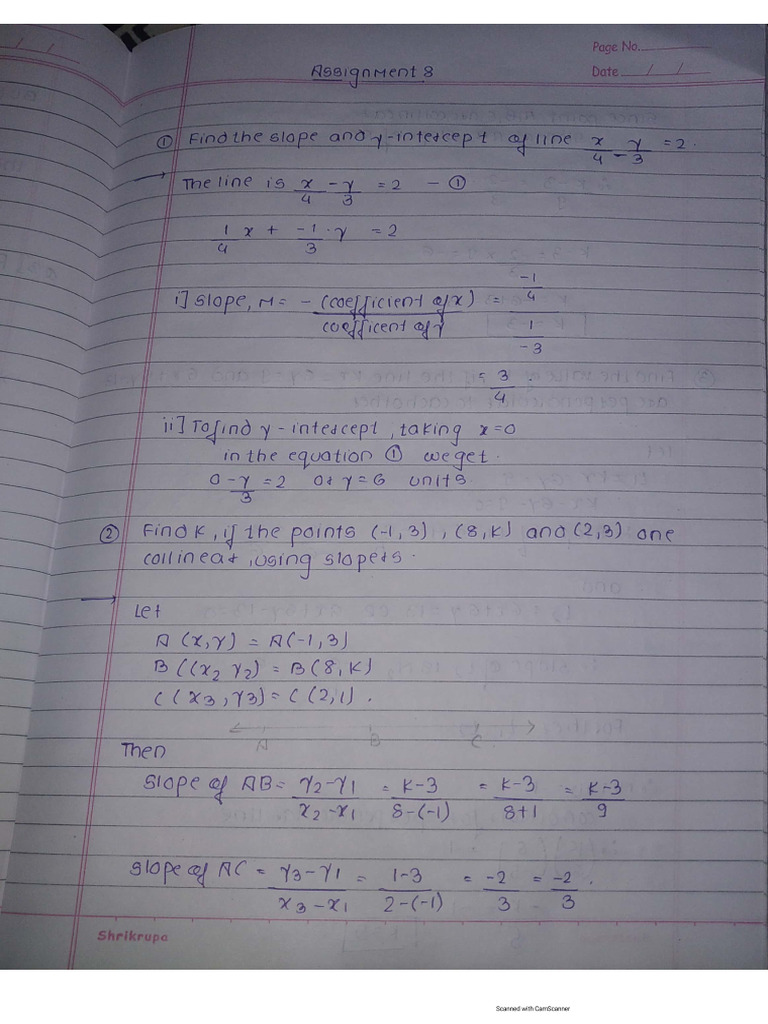 Page No.
Date / /
Assignment 8
① Find the slope and y-intercept of line x/4 - y/3 = 2.
→ The line is x/4 - y/3 = 2 - ①
1/4 x + -1/3 . y = 2
i] slope, M = - (coefficient of x) / coefficent of y = -1/4 / 1/-3
= 3/4.
ii] To find y-intercept, taking x=0
in the equation ① we get.
0 - y/3 = 2 or y = 6 units.
② Find K, if the points (-1,3), (8,K) and (2,3) one
collinear, using slopers.
→ Let
A (x,y) = A(-1,3)
B ((x2 y2) = B(8,K)
C (x3, y3) = C (2,1).
Then
Slope of AB = y2-y1 / x2-x1 = K-3 / 8-(-1) = K-3 / 8+1 = K-3 / 9
Slope of AC = y3-y1 / x3-x1 = 1-3 / 2-(-1) = -2/3 = -2/3.
Shrikrupa
Scanned with CamScanner